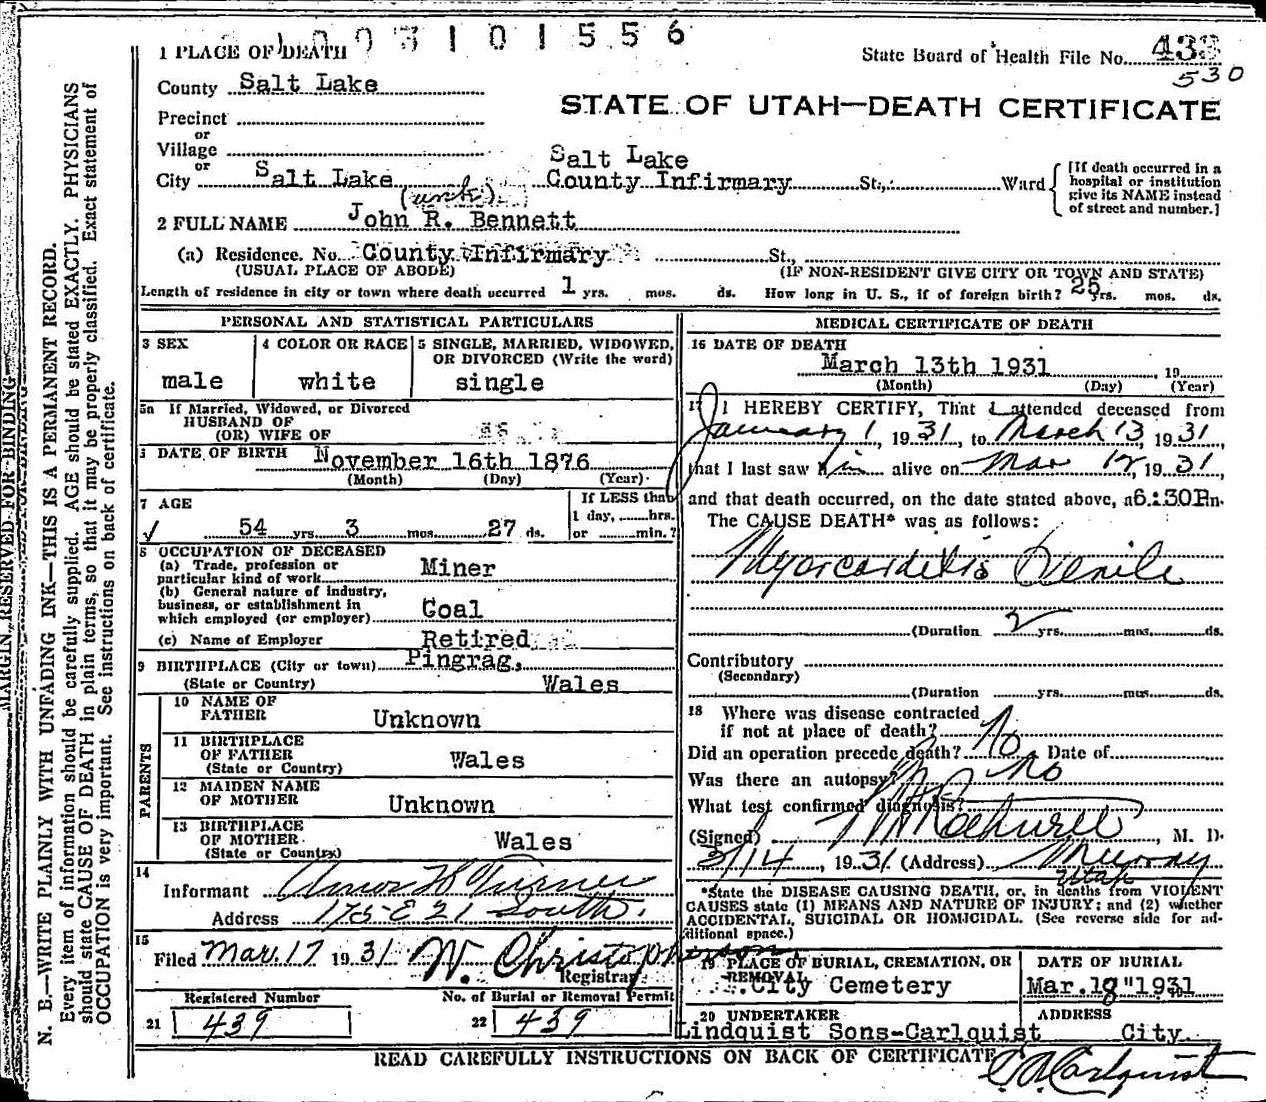 1003101556
State Board of Health File No. 433
530
1 PLACE OF DEATH
County Salt Lake
STATE OF UTAH—DEATH CERTIFICATE
Precinct
or
Village
or
City Salt Lake
Salt Lake
County Infirmary St., Ward
[If death occurred in a
hospital or institution
give its NAME instead
of street and number.]
2 FULL NAME John R. Bennett
(a) Residence. No. County Infirmary St.,
(USUAL PLACE OF ABODE) (IF NON-RESIDENT GIVE CITY OR TOWN AND STATE)
Length of residence in city or town where death occurred 1 yrs. mos. ds. How long in U. S., if of foreign birth? 25 yrs. mos. ds.
PERSONAL AND STATISTICAL PARTICULARS
3 SEX
male
4 COLOR OR RACE
white
5 SINGLE, MARRIED, WIDOWED,
OR DIVORCED (Write the word)
single
5a If Married, Widowed, or Divorced
HUSBAND OF
(OR) WIFE OF
DATE OF BIRTH November 16th 1876
(Month) (Day) (Year)
7 AGE
54 yrs. 3 mos. 27 ds.
If LESS than
1 day, hrs.
or min.?
8 OCCUPATION OF DECEASED
(a) Trade, profession or
particular kind of work Miner
(b) General nature of industry,
business, or establishment in
which employed (or employer) Coal
(c) Name of Employer Retired
9 BIRTHPLACE (City or town) Pingrag,
(State or Country) Wales
PARENTS
10 NAME OF
FATHER Unknown
11 BIRTHPLACE
OF FATHER Wales
(State or Country)
12 MAIDEN NAME
OF MOTHER Unknown
13 BIRTHPLACE
OF MOTHER Wales
(State or Country)
14
Informant Amos H Turner
Address 175 E 21 South.
15
Filed Mar. 17 1931 W. Christopherson
Registrar
Registered Number
21 439
No. of Burial or Removal Permit
22 439
MEDICAL CERTIFICATE OF DEATH
16 DATE OF DEATH
March 13th 1931, 19
(Month) (Day) (Year)
17 I HEREBY CERTIFY, That I attended deceased from
January 1, 1931, to March 13, 1931,
that I last saw him alive on Mar 12, 1931,
and that death occurred, on the date stated above, at 6:30 P m.
The CAUSE DEATH* was as follows:
Myorcarditis Senile
(Duration 2 yrs. mos. ds.
Contributory
(Secondary)
(Duration yrs. mos. ds.
18 Where was disease contracted
if not at place of death?
Did an operation precede death? No Date of
Was there an autopsy? No
What test confirmed diagnosis?
(Signed) , M. D.
3/14, 1931 (Address) Murray
Utah
*State the DISEASE CAUSING DEATH, or, in deaths from VIOLENT
CAUSES state (1) MEANS AND NATURE OF INJURY; and (2) whether
ACCIDENTAL, SUICIDAL OR HOMICIDAL. (See reverse side for ad-
ditional space.)
19 PLACE OF BURIAL, CREMATION, OR
REMOVAL
City Cemetery
DATE OF BURIAL
Mar. 18" 1931
20 UNDERTAKER
Lindquist Sons-Carlquist
ADDRESS
City.
READ CAREFULLY INSTRUCTIONS ON BACK OF CERTIFICATE
C A Carlquist
MARGIN RESERVED FOR BINDING
N. B.—WRITE PLAINLY WITH UNFADING INK—THIS IS A PERMANENT RECORD.
Every item of information should be carefully supplied. AGE should be stated EXACTLY. PHYSICIANS
should state CAUSE OF DEATH in plain terms, so that it may be properly classified. Exact statement of
OCCUPATION is very important. See instructions on back of certificate.